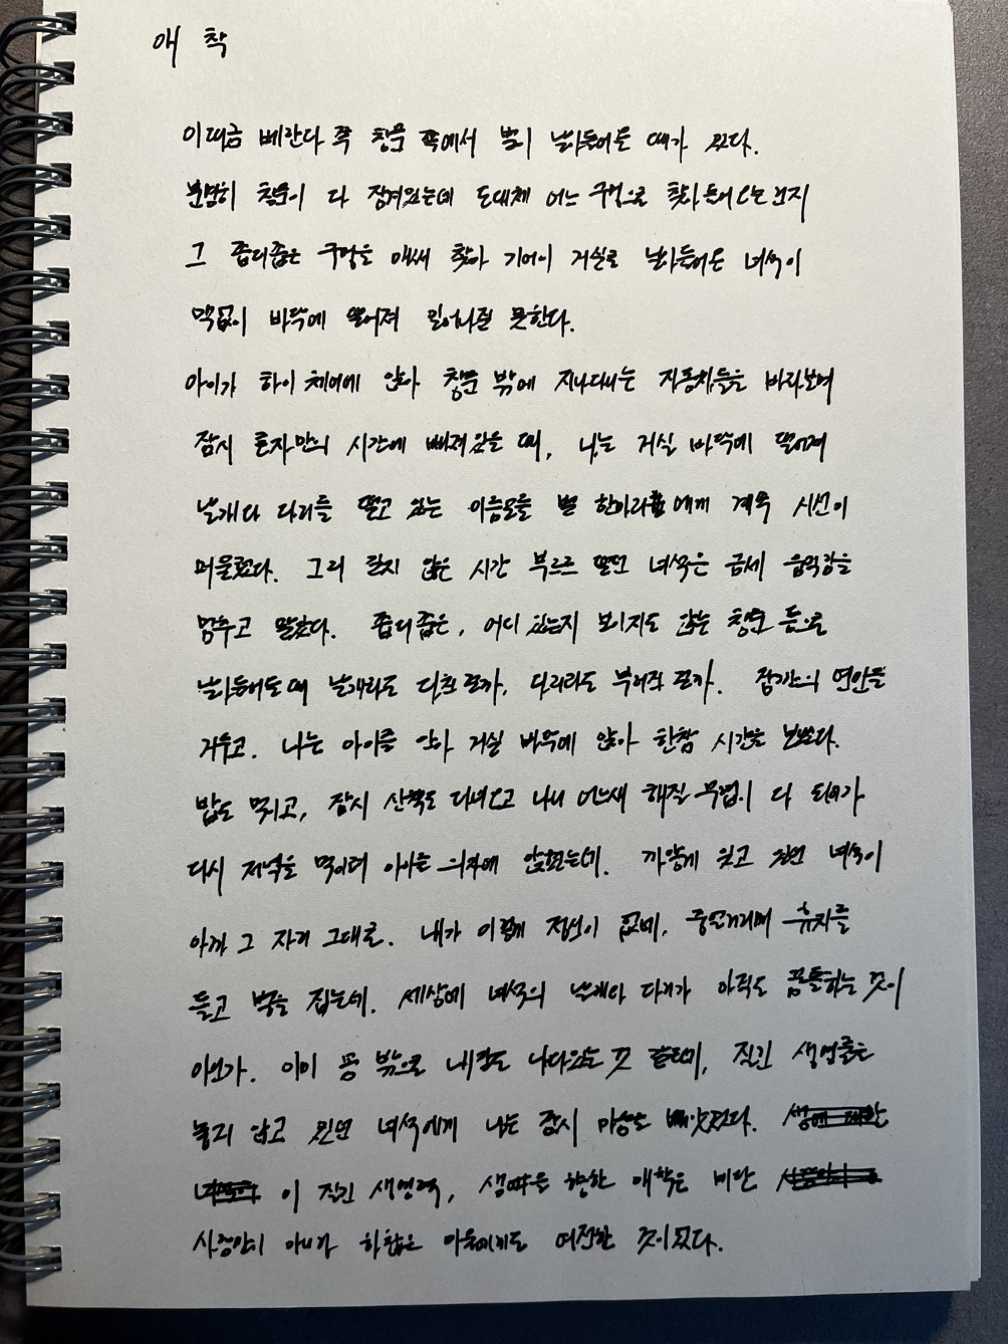 애 착
이따금 베란다 쪽 창문 쪽에서 벌이 날아들어올 때가 있다.
분명히 창문이 다 잠겨있는데 도대체 어느 구멍으로 찾아 들어오는건지
그 좁디좁은 구멍을 애써 찾아 기어이 거실로 날아들어온 녀석이
맥없이 바닥에 떨어져 일어나질 못한다.
아이가 하이 체어에 앉아 창문 밖에 지나다니는 자동차들을 바라보며
잠시 혼자만의 시간에 빠져있을 때, 나는 거실 바닥에 떨어져
날개다 다리를 떨고 있는 이름모를 벌 한마리에게 계속 시선이
머물렀다. 그리 길지 않은 시간 부르르 떨던 녀석은 금세 움직임을
멈추고 말았다. 좁디좁은, 어디 있는지 보이지도 않는 창문 틈으로
날아들어올때 날개라도 다친 걸까, 다리라도 부러진 걸까. 잠깐의 연민을
거두고. 나는 아이를 안아 거실 바닥에 앉아 한참 시간을 보냈다.
밥도 먹이고, 잠시 산책도 다녀오고 나니 어느새 해질 무렵이 다 되어가
다시 저녁을 먹이려 아이를 의자에 앉혔는데. 까맣게 잊고 있던 녀석이
아까 그 자리 그대로. 내가 이렇게 정신이 없네, 중얼거리며 휴지를
들고 벌을 집는데. 세상에 녀석의 날개와 다리가 아직도 꿈틀하는 것이
아닌가. 이미 몸 밖으로 내장도 나와있는 것 같던데, 질긴 생명줄을
놓지 않고 있던 녀석에게 나는 잠시 마음을 빼앗겼다.
이 질긴 생명력, 생명을 향한 애착은 비단
사람만이 아니라 하찮은 미물에게도 여전한 것이었다.